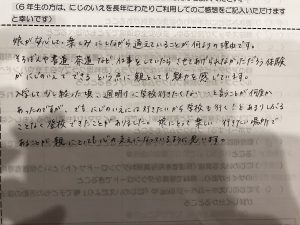 (６年生の方にじのいえを長年にわたりご利用してのご感想をご記入いただけますと幸いです)
娘が安心して、楽しみにしながら通えていることが何よりの理由です。
そろばんや書道、茶道など、仕事をしていたらさせてあげられなかっただろう体験
がにじのいえでできるという点に親としても魅力を感じています。
入学して少し経った頃、週明けに学校行きたくない…と言うことが何度か
あったのですが、でもにじのいえには行きたいから学校も行く！とあまりしぶる
ことなく登校できたことがありました。娘にとって楽しい、行きたい場所で
あることが親にとっても心の支えになっているように思います。